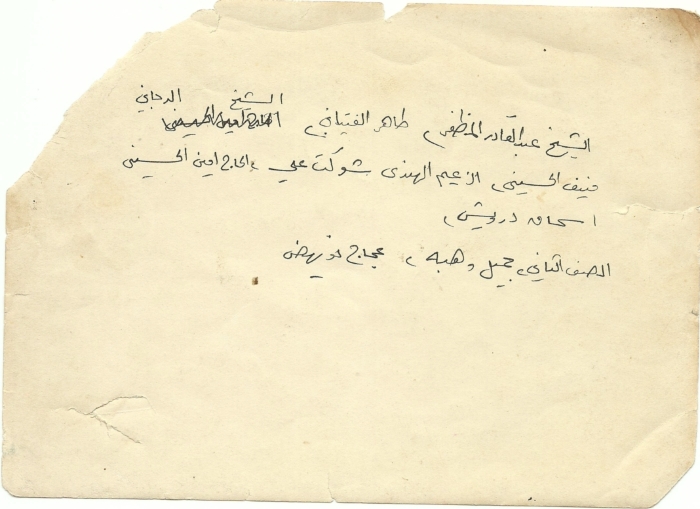 الشيخ الدجاني
الشيخ عبد القادر المظفر، طاهر الفتياني،
منيف الحسيني، الزعيم الهندي شوكت علي، الحاج امين الحسيني
اسحاق درويش،
الصف الثاني، جميل وهبه، عجاج نويهض